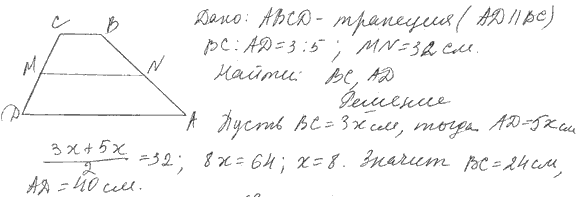 C B
Дано: ABCD - трапеция (AD || BC)
BC : AD = 3 : 5 ; MN = 32 см.
M N
Найти: BC, AD
Решение
D A
Пусть BC = 3x см, тогда AD = 5x см
(3x + 5x)/2 = 32 ; 8x = 64 ; x = 8. Значит BC = 24 см,
AD = 40 см.